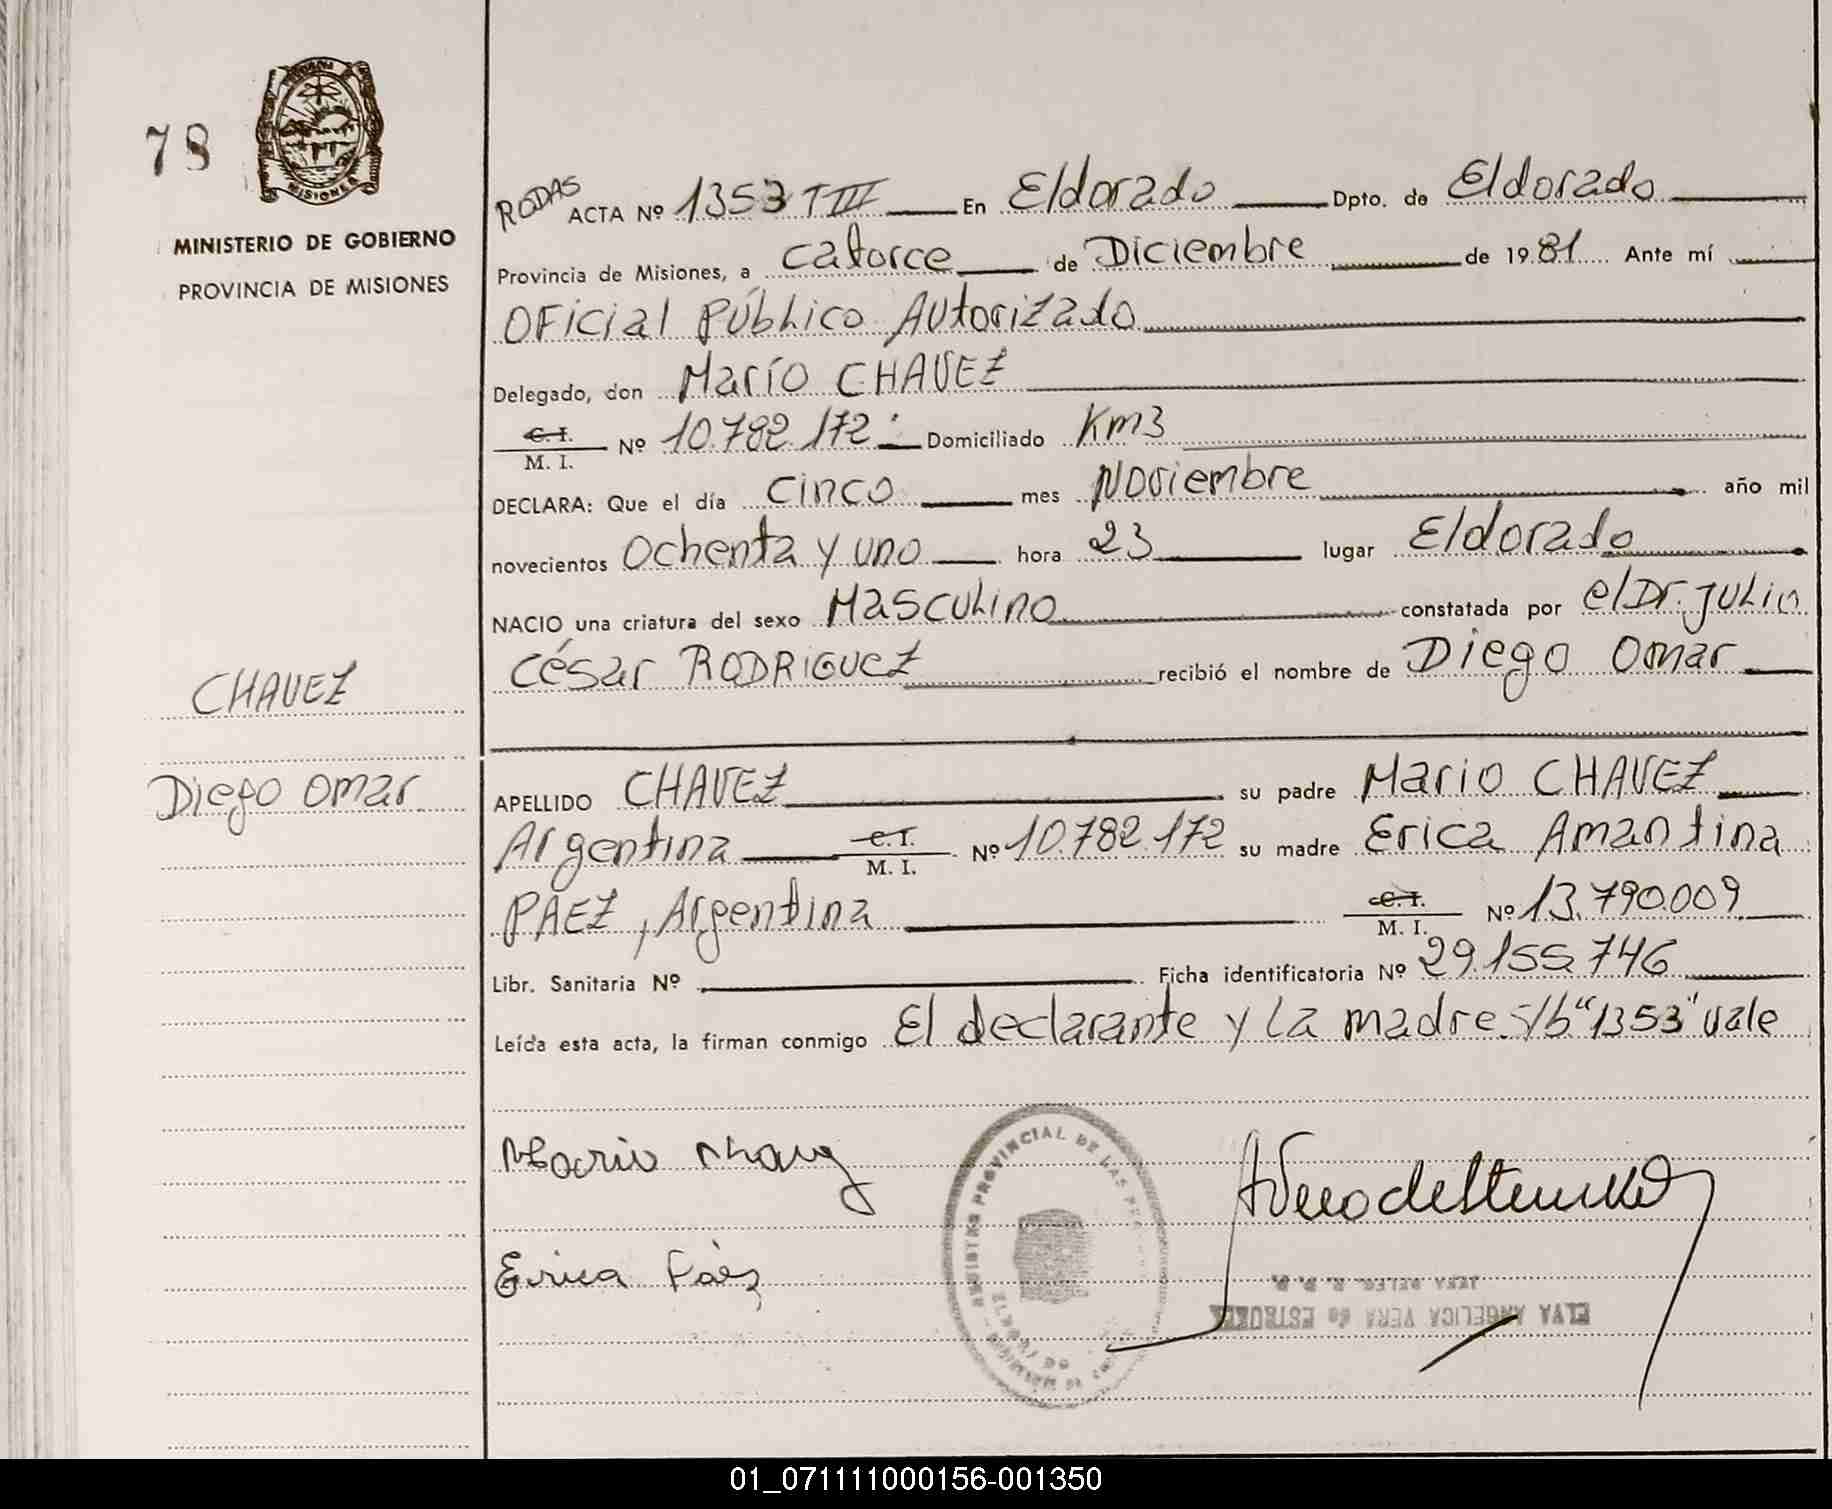 78
MISIONES
MINISTERIO DE GOBIERNO
PROVINCIA DE MISIONES
CHAVEZ
Diego Omar
RODAS ACTA Nº 1353 T III En Eldorado Dpto. de Eldorado
Provincia de Misiones, a catorce de Diciembre de 1981 Ante mí
Oficial Público Autorizado
Delegado, don Mario CHAVEZ
C. I. / M. I. Nº 10.782.172 Domiciliado Km3
DECLARA: Que el día cinco mes Noviembre año mil
novecientos Ochenta y uno hora 23 lugar Eldorado
NACIO una criatura del sexo Masculino constatada por el Dr. Julio
César RODRIGUEZ recibió el nombre de Diego Omar
APELLIDO CHAVEZ su padre Mario CHAVEZ
Argentina C. I. / M. I. Nº 10.782.172 su madre Erica Amantina
PAEZ, Argentina C. I. / M. I. Nº 13.790.009
Libr. Sanitaria Nº Ficha identificatoria Nº 29.155.746
Leída esta acta, la firman conmigo El declarante y la madre s/b "1353" vale
Mario Chavez
REGISTRO PROVINCIAL DE LAS
Erica Páez
ELVA ANGELICA VERA de
01_071111000156-001350